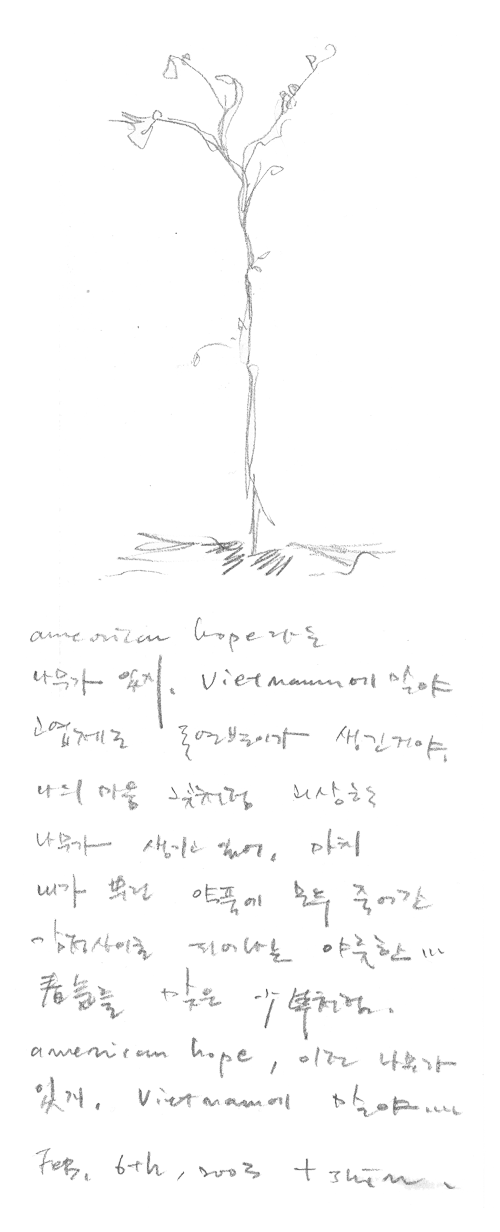 american hope라는
나무가 있지. Vietnam에 말야
고엽제로 돌연변이가 생긴거야,
나의 마음 그것처럼 괴상한
나무가 생기고 있어, 마치
내가 뿌린 약품에 모두 죽어간
감정사이로 피어나는 야릇한...
春을 맞은 少年처럼.
american hope, 이런 나무가
있지. Vietnam에 말야....
Feb. 6th, 2003